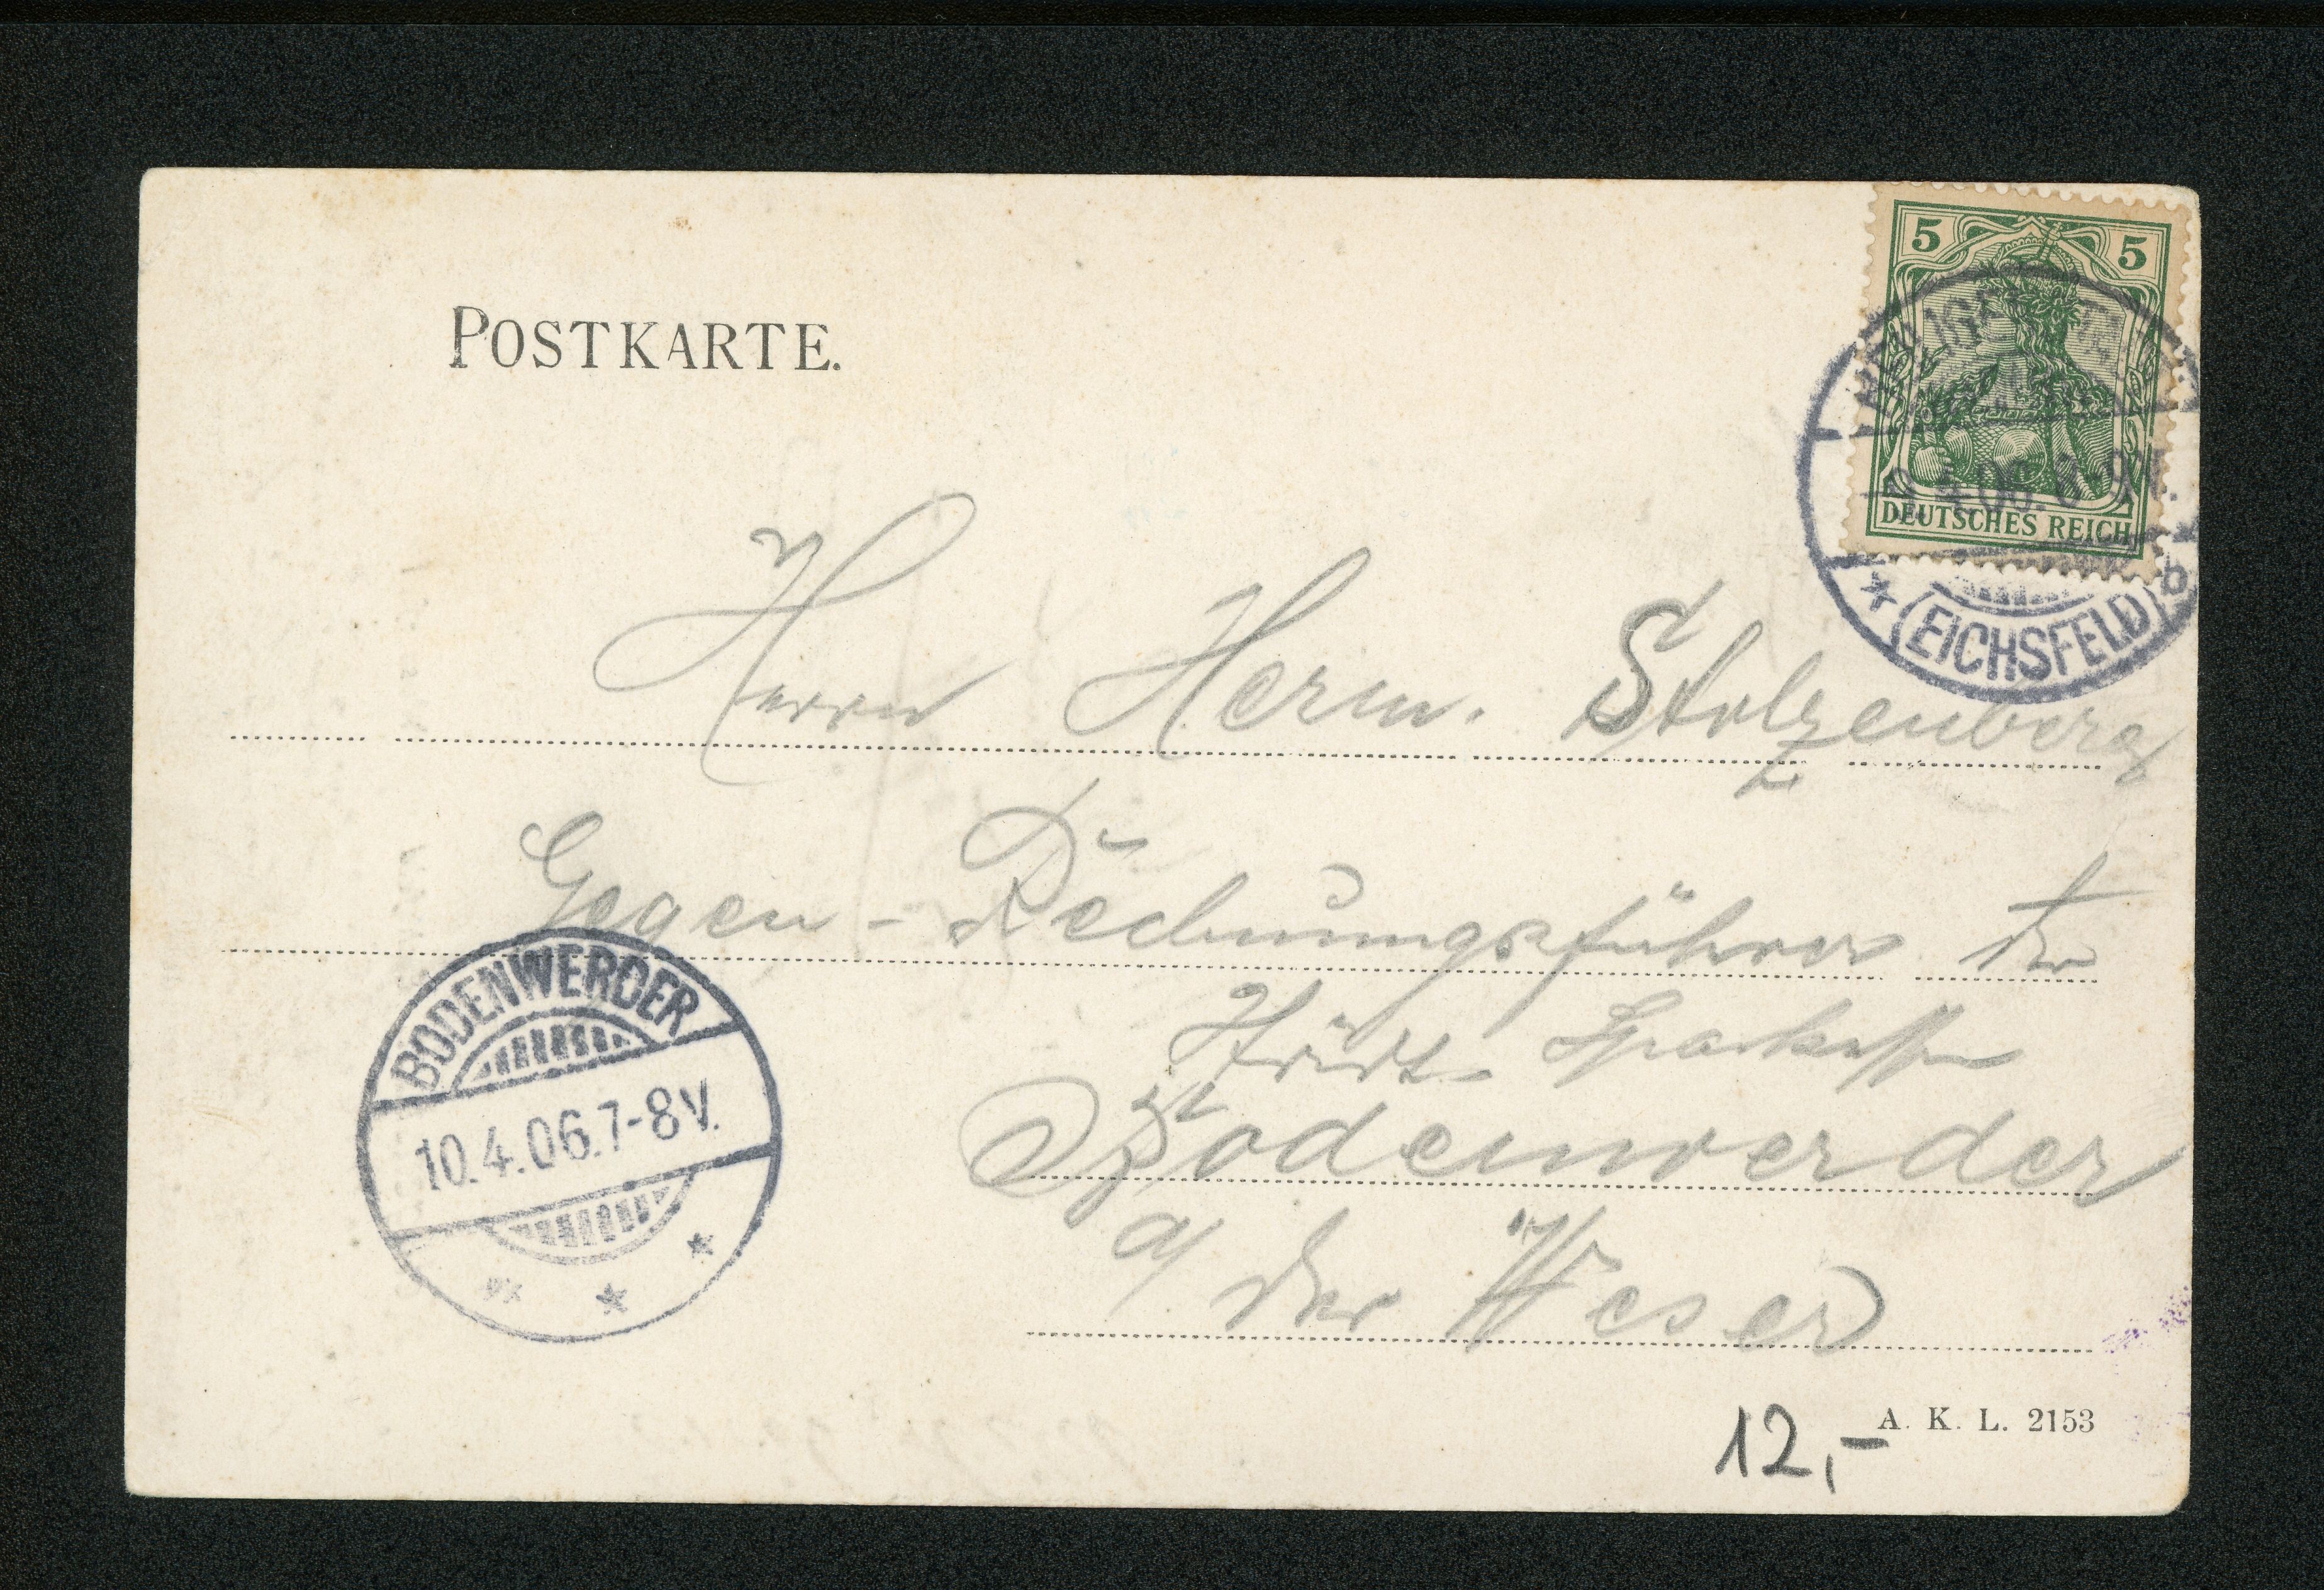 POSTKARTE.
5 5
DEUTSCHES REICH
(EICHSFELD)
b
Herrn Herm. Stolzenberg
Gegen-Rechnungsführer der
Städt. Sparkasse
Bodenwerder
a/ der Weser
BODENWERDER
10.4.06.7-8V.
12,-
A. K. L. 2153